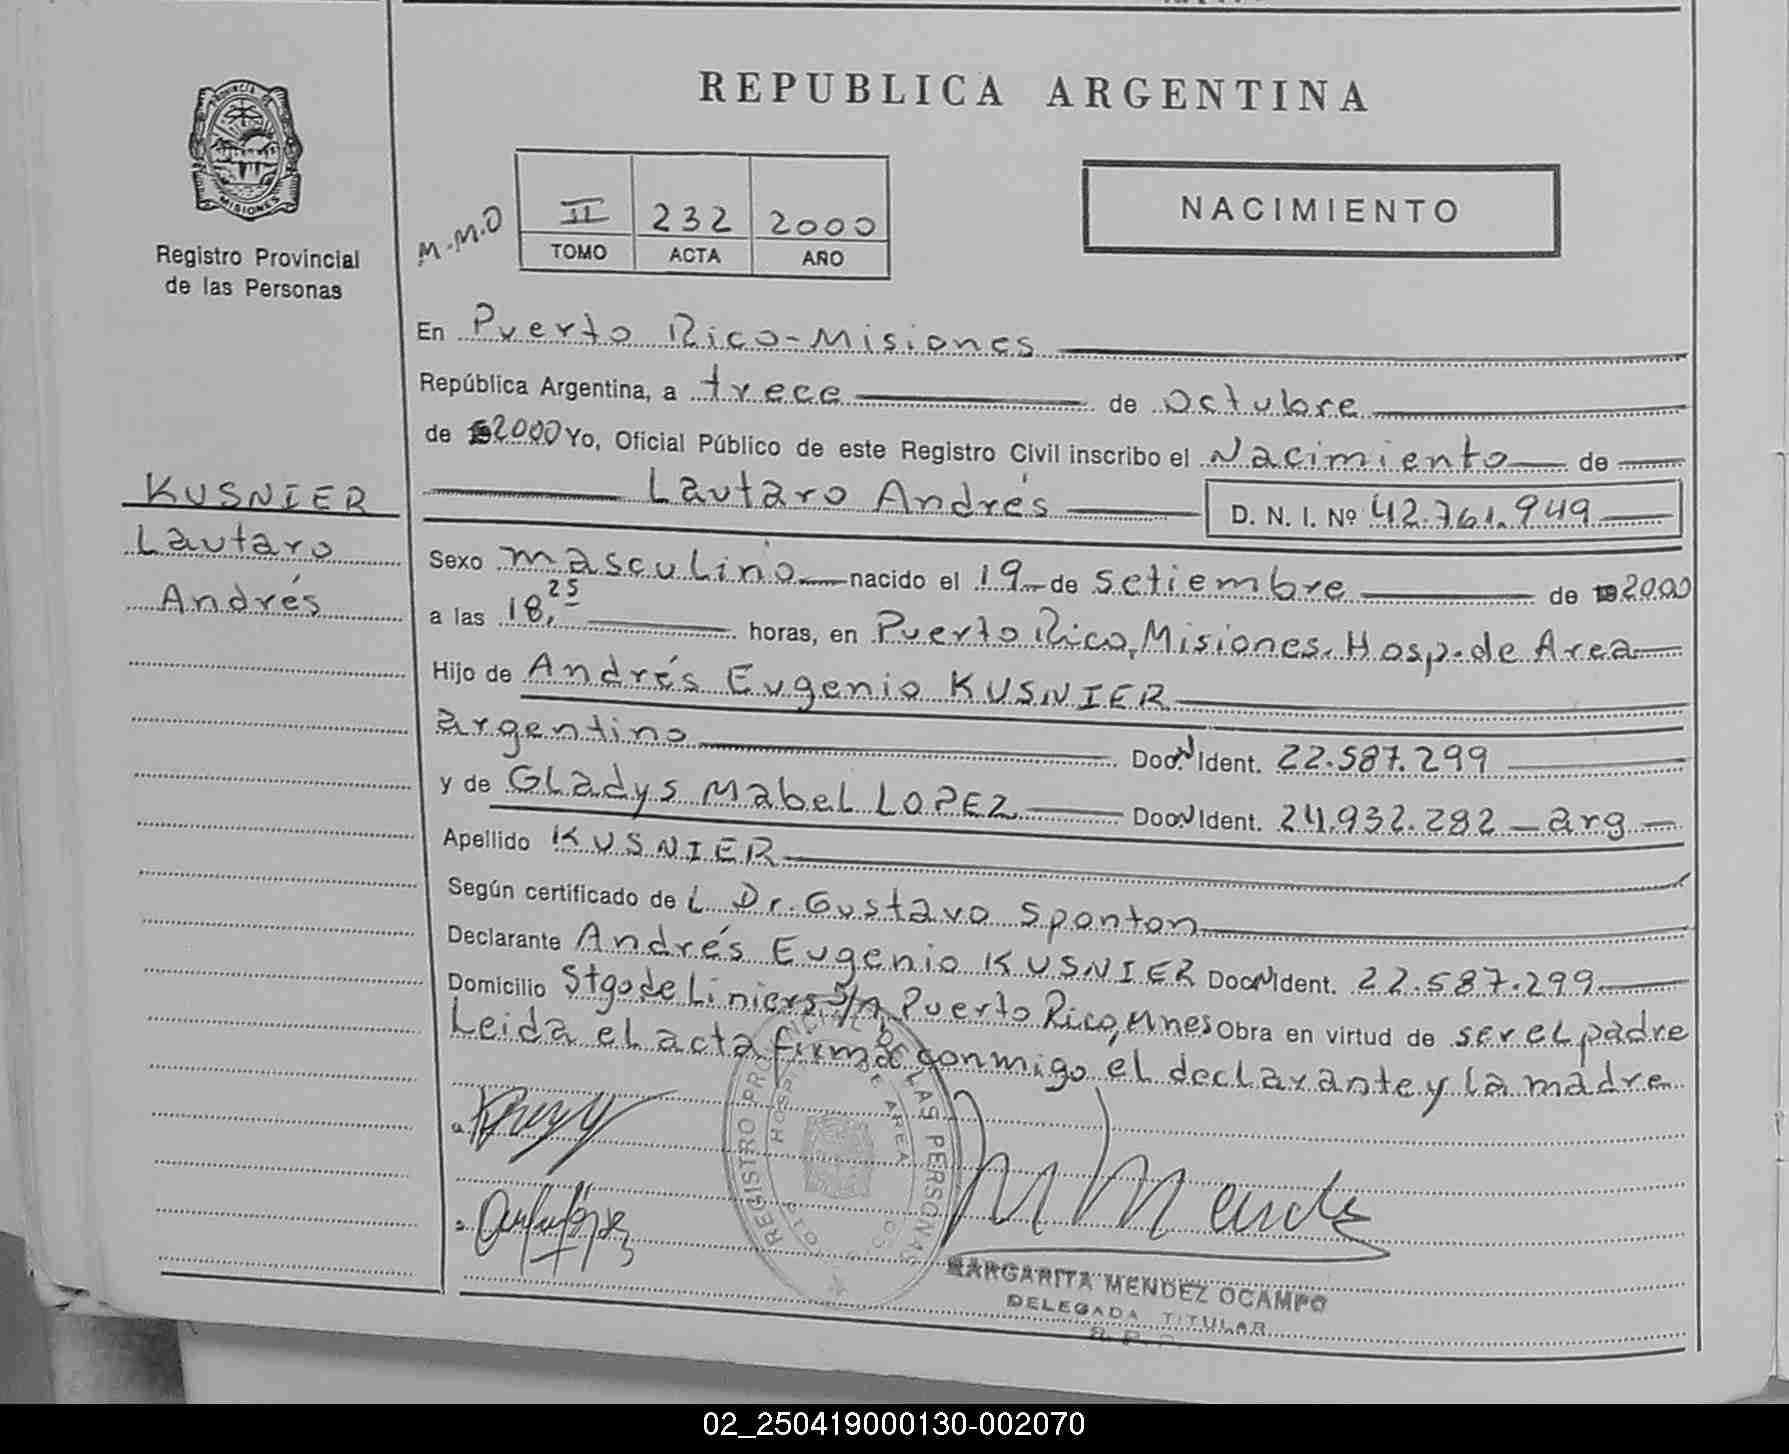 REPUBLICA ARGENTINA
PROVINCIA DE
MISIONES
Registro Provincial
de las Personas
M.M.O
II 232 2000
TOMO ACTA AÑO
NACIMIENTO
En Puerto Rico-Misiones
República Argentina, a trece de octubre
de 2000 Yo, Oficial Público de este Registro Civil inscribo el Nacimiento de
Lautaro Andrés D. N. I. Nº 42.761.949
KUSNIER
Lautaro
Andrés
Sexo masculino nacido el 19 de setiembre de 2000
a las 18,25 horas, en Puerto Rico, Misiones. Hosp. de Area
Hijo de Andrés Eugenio KUSNIER
argentino Doc. N Ident. 22.587.299
y de Gladys Mabel LOPEZ Doc. N Ident. 24.932.282 - arg -
Apellido KUSNIER
Según certificado de L Dr. Gustavo Sponton
Declarante Andrés Eugenio KUSNIER Doc. N Ident. 22.587.299
Domicilio Stgo de Liniers s/n, Puerto Rico, Mnes Obra en virtud de ser el padre
Leida el acta firmá conmigo el declarante y la madre
REGISTRO PROVINCIAL DE LAS PERSONAS
HOSP. DE AREA
PTO. RICO
MARGARITA MENDEZ OCAMPO
DELEGADA TITULAR
02_250419000130-002070